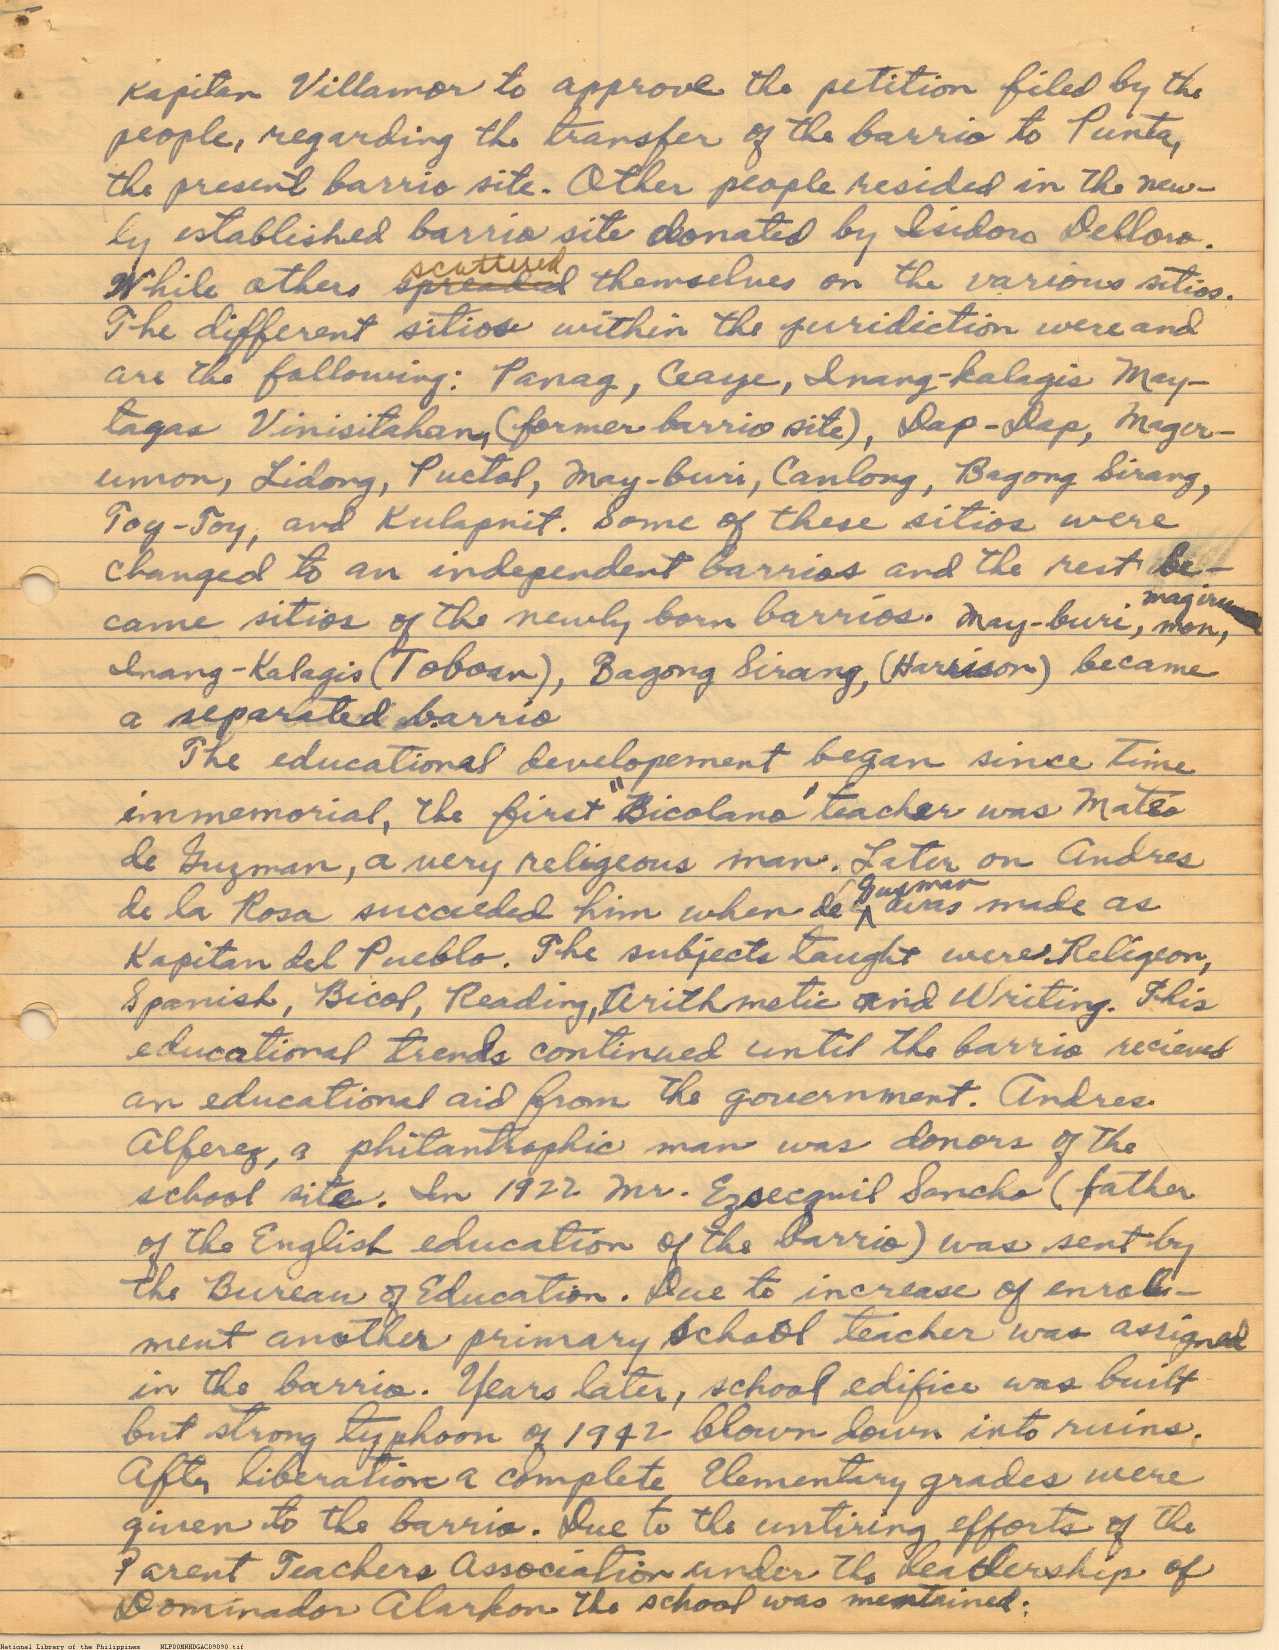 Kapitan Villamor to approve the petition filed by the
people, regarding the transfer of the barrio to Punta,
the present barrio site. Other people resided in the new-
ly established barrio site donated by Isidoro Delloro.
While others spreaded scattered themselves on the various sitios.
The different sitios within the juridiction were and
are the following: Panag, Ceaye, Inang-Kalagis May-
tagas Vinisitahan, (former barrio site), Dap-Dap, Mager-
umon, Lidong, Puctol, May-buri, Canlong, Bagong Sirang,
Toy-Toy, and Kulapnit. Some of these sitios were
changed to an independent barrios and the rest be-
came sitios of the newly born barrios. May-buri, magiru
mon,
Inang-Kalagis (Toboan), Bagong Sirang, (Harrison) became
a separated barrio
The educational developement began since time
immemorial, the first "Bicolano" teacher was Mateo
de Guzman, a very religeous man. Later on Andres
de la Rosa succeeded him when de Guzman was made as
Kapitan del Pueblo. The subjects taught were Religeon,
Spanish, Bicol, Reading, Arithmetic and Writing. This
educational trends continued until the barrio recieved
an educational aid from the government. Andres
Alferez, a philantrophic man was donors of the
school site. In 1922 Mr. Ezsecquil Sancho (father
of the English education of the barrio) was sent by
the Bureau of Education. Due to increase of enrol-
ment another primary school teacher was assigned
in the barrio. Years later, school edifice was built
but strong typhoon of 1942 blown down into ruins.
After liberation a complete Elementary grades were
given to the barrio. Due to the untiring efforts of the
Parent Teachers Association under the leadership of
Dominador Alarkon the school was mentained.
National Library of the Philippines NLP00MNHDGAC09090.tif